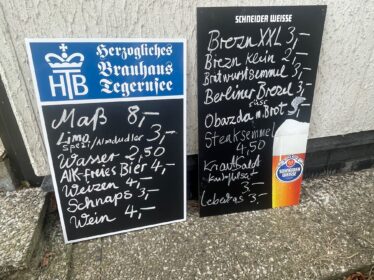 Herzogliches
Brauhaus
Tegernsee
HTB
Maß 8,-
Limo 3,-
Spezi / Almdudler
Wasser 2,50
Alk-freies Bier 4,-
Weizen 4,-
Schnaps 3,-
Wein 4,-
SCHNEIDER WEISSE
Brezn XXL 3,-
Brezn klein 2,-
Bratwurstsemmel 3,-
Berliner Brezel 3,-
Obazda m. Brot 3,-
Steaksemmel
4,50
3,-
3,-
SCHNEIDER
WEISSE